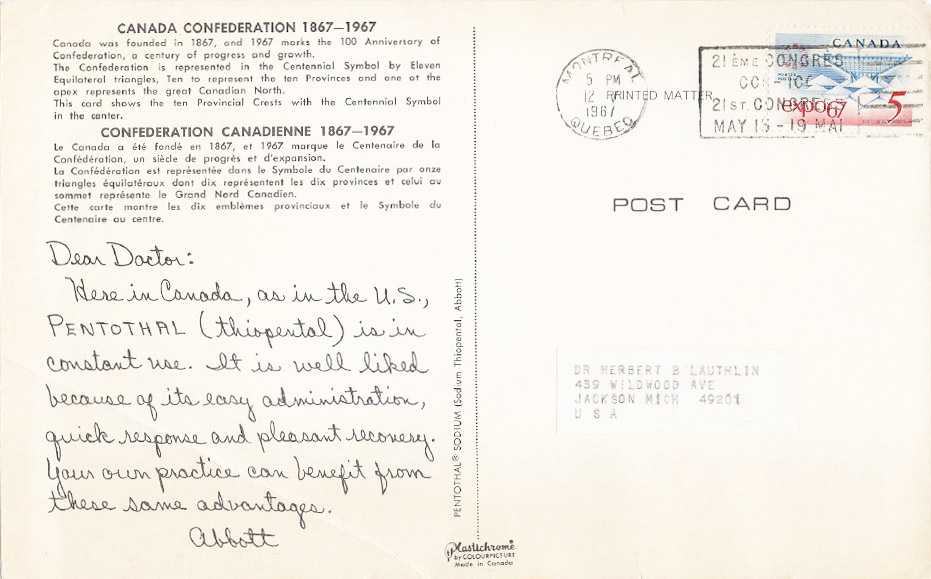 CANADA CONFEDERATION 1867—1967
Canada was founded in 1867, and 1967 marks the 100 Anniversary of
Confederation, a century of progress and growth.
The Confederation is represented in the Centennial Symbol by Eleven
Equilateral triangles, Ten to represent the ten Provinces and one at the
apex represents the great Canadian North.
This card shows the ten Provincial Crests with the Centennial Symbol
in the center.
CONFEDERATION CANADIENNE 1867—1967
Le Canada a été fondé en 1867, et 1967 marque le Centenaire de la
Confédération, un siècle de progrès et d'expansion.
La Confédération est représentée dans le Symbole du Centenaire par onze
triangles équilatéraux dont dix représentent les dix provinces et celui au
sommet représente le Grand Nord Canadien.
Cette carte montre les dix emblèmes provinciaux et le Symbole du
Centenaire au centre.
Dear Doctor:
Here in Canada, as in the U.S.,
PENTOTHAL (thiopental) is in
constant use. It is well liked
because of its easy administration,
quick response and pleasant recovery.
Your own practice can benefit from
these same advantages.
Abbott
PENTOTHAL® SODIUM (Sodium Thiopental, Abbott)
Plastichrome
by COLOURPICTURE
Made in Canada
MONTREAL
5 PM
12 V
1967
QUEBEC
PRINTED MATTER
21IÈME CONGRES
CCI-ICC
21ST. CONGRESS
MAY 13-19 MAI
CANADA
expo67
5
POST CARD
DR HERBERT B LAUTHLIN
439 WILDWOOD AVE
JACKSON MICH 49201
U S A